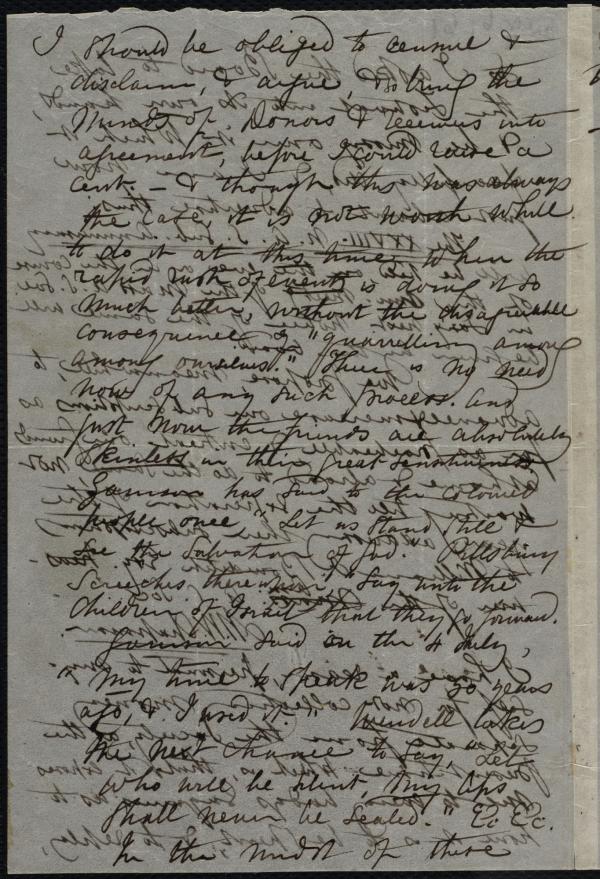 I should be obliged to censure &
disclaim, & argue, & to bring the
Minds of Donors & receivers into
agreement, before I could raise a
cent. – & though this was always
the case, it is not worth while
to do it at this time, when the
rapid rush of events is doing it so
much better, without the disagreeable
consequence of "quarrelling among
among ourselves." There is no need
now of any such process. And
just now the friends are absolutely
skinless in their great sensitiveness.
Garrison has said to the colored
people once, "Let us Stand Still &
See the Salvation of God." Pillsbury
Screeches thereupon "Say unto the
Children of Israel that they go forward.
Garrison said on the 4 July,
"My time to speak was 30 years
ago, & I used it." Wendell takes
the next chance to say, "Let
who will be silent, my lips
shall never be sealed." &c &c.
In the midst of these